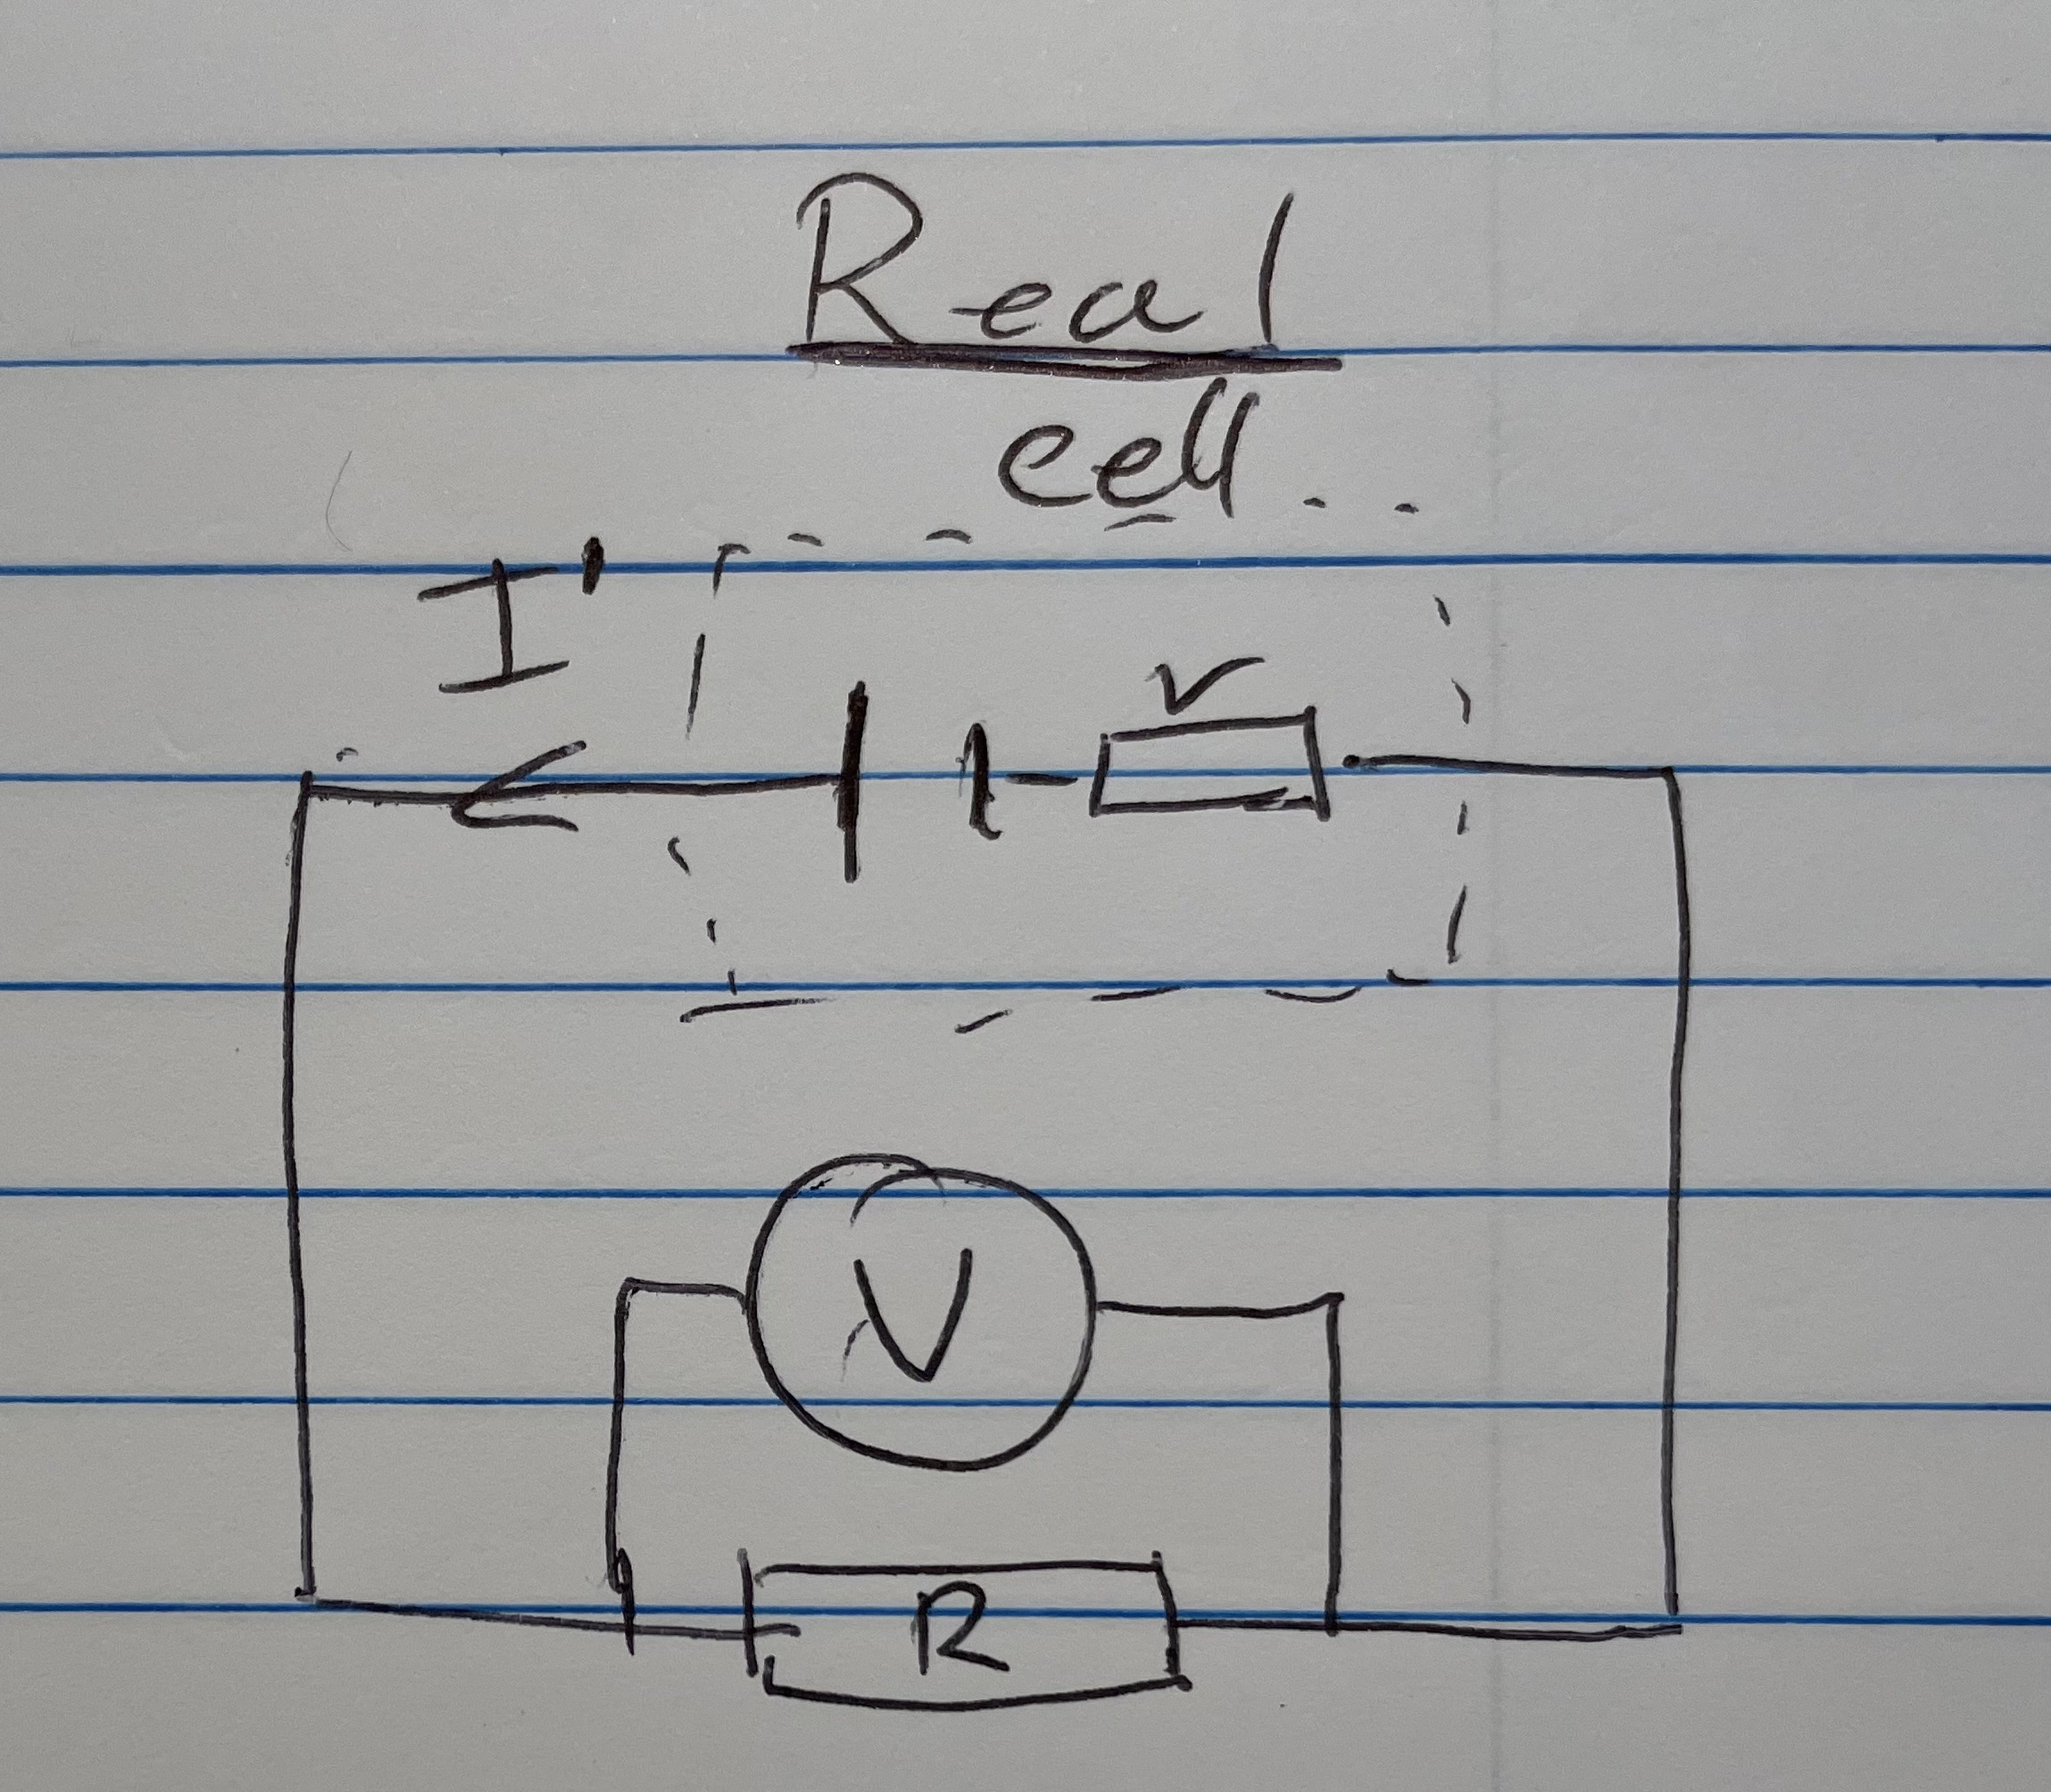 Real
cell
I'
r
V
R